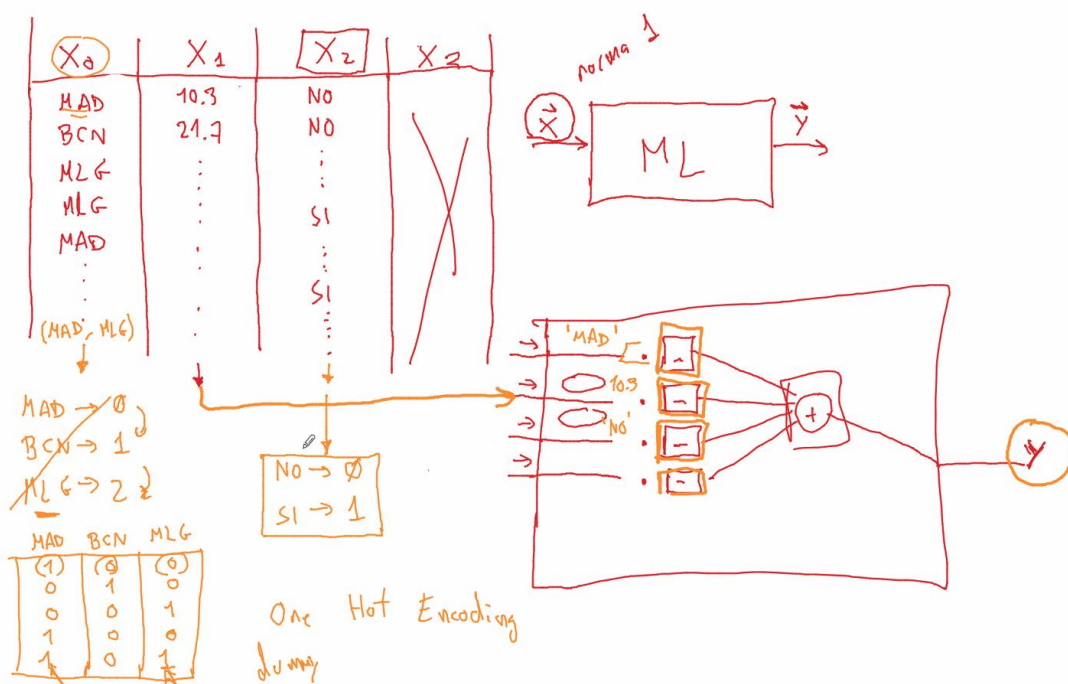 X0 X1 X2 X2
MAD 10.3 NO
BCN 21.7 NO
MLG
MLG SI
MAD
SI
(MAD, MLG)
MAD → 0
BCN → 1
MLG → 2
NO → 0
SI → 1
MAD BCN MLG
(1) (0) (0)
0 1 0
0 0 1
1 0 0
1 0 1
One Hot Encoding
dummy
norma 1
X
ML
Y
'MAD' -
10.3 -
'NO' -
-
+
Y